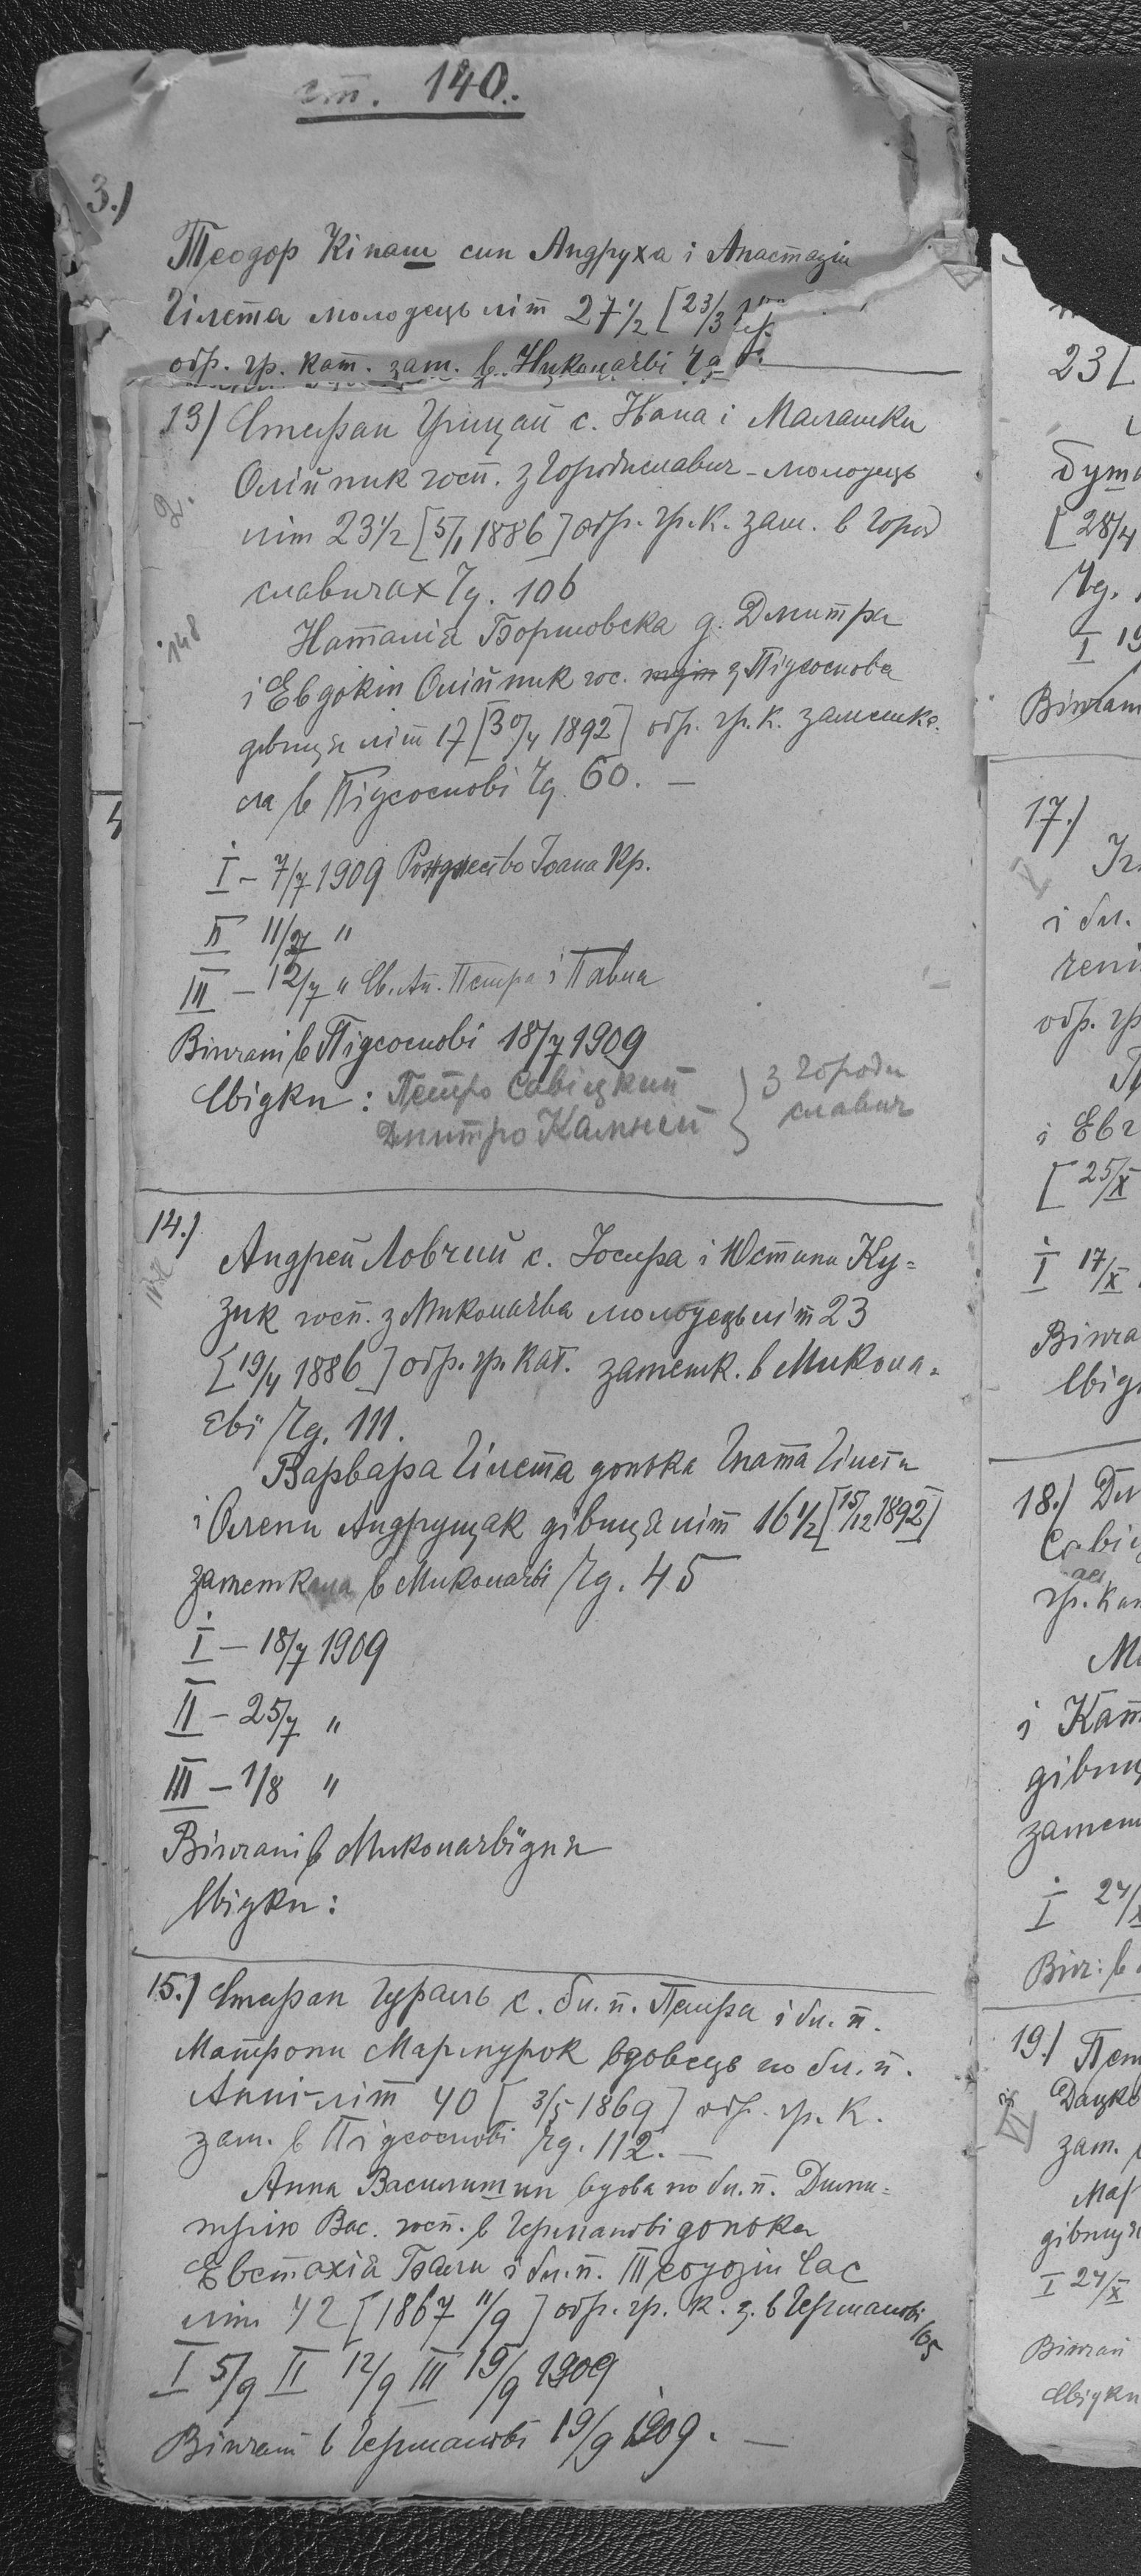 ст. 140.
3.)
Теодор Кіпаш син Андруха і Анастазіи
Гілета молодець літ 27 1/2 [23/3
обр. гр. кат. зам. в Николаєві Чд
13) Стефан Грицай с. Івана і Малашки
Олійник госп. з Городиславич - молодець
2.
літ 23 1/2 [5/1 1886] обр. гр. к. зам. в Город
славичах Чд. 106
148
Наталія Боршовска д. Дмитра
і Евдокіи Олійник гос. з Підсоснова
дівиця літ 17 [30/4 1892] обр. гр. к. замешка
ла в Підсоснові Чд. 60. —
I – 7/7 1909 Рождество Іоана Кр.
II 11/7 "
III – 12/7 " Св. Ап. Петра і Павла
Вінчані в Підсоснові 18/7 1909
Свідки : Петро Савіцкий } з Городи
Дмитро Камінь славич
14.)
Андрей Ловчий с. Йосифа і Юстини Ку=
зик госп. з Миколаєва молодець літ 23
[19/4 1886] обр. гр. кат. замешк. в Микола=
єві Чд. 111.
Варвара Гілета донька Гната Гілети
і Олени Андрущак дівиця літ 16 1/2 [15/12 1892]
замешкала в Миколаєві Чд. 45
I – 18/7 1909
II – 25/7 "
III – 1/8 "
Вінчані в Миколаєві дня
Свідки :
15.) Стефан Гураль с. бл. п. Петра і бл. п.
Матрони Марцурок вдовець по бл. п.
Анні літ 40 [3/5 1869] обр. гр. к.
зам. в Підсоснові Чд. 112. —
Анна Василишин вдова по бл. п. Дми=
трію Вас. госп. в Германові донька
Евстахія Бали і бл. п. Час
літ 42 [1867 11/9] обр. гр. к. з. в Германові
105
I 5/9 II 12/9 III 19/9 1909
Вінчані в Германові 19/9 1909. —
23 [
[28/4
Чд.
I 19
17.)
і бл.
обр. гр
і Евг
[25/X
I 17/X
18.) Дм
Савіц
гр. кат
і Кат
дівиц
замеш
I 24/X
Вінч: в
19.) Пет
Дацко
зам.
Мар
дівиця
I 24/X
Вінчан
Свідки